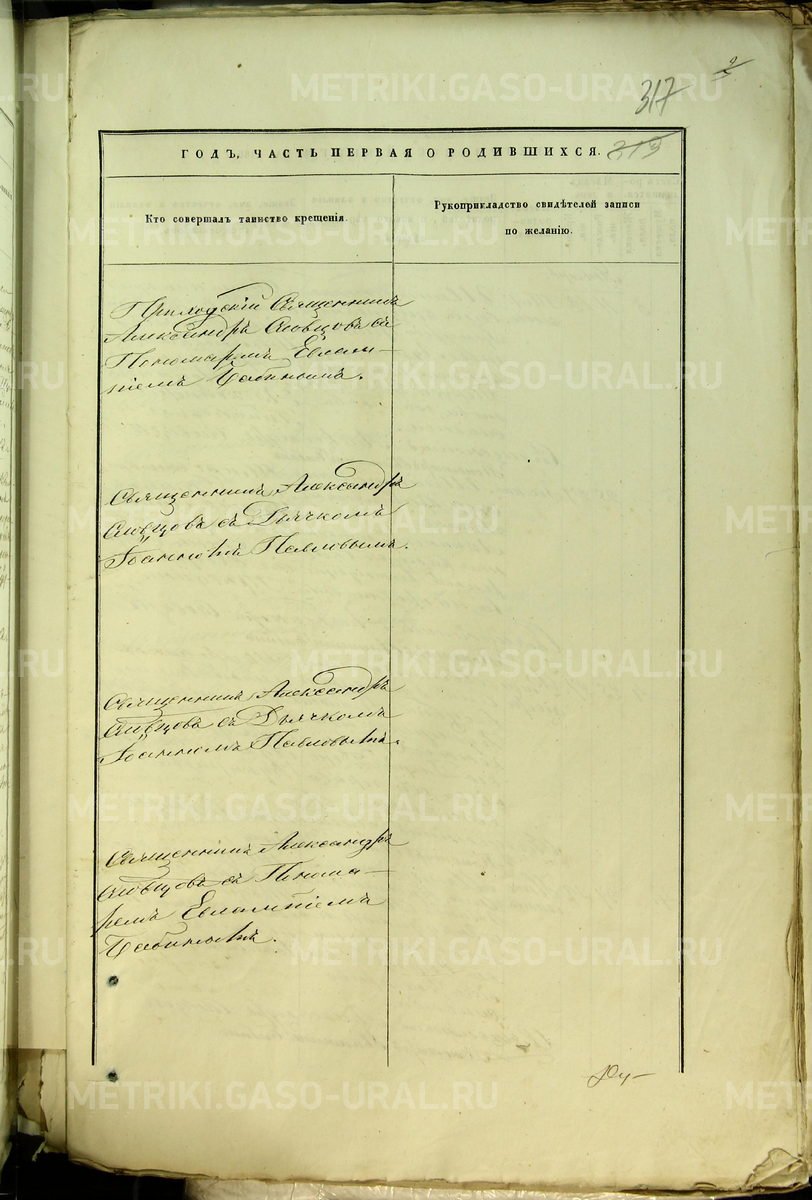 2
317
313
ГОДЪ, ЧАСТЬ ПЕРВАЯ О РОДИВШИХСЯ.
Кто совершалъ таинство крещенія.
Рукоприкладство свидѣтелей записи
по желанію.
Приходскій Священникъ
Александръ Словцовъ съ
Пономаремъ Евлам-
піемъ
Священникъ Александръ
Словцовъ съ Дьячкомъ
Іоанномъ Павловымъ.
Священникъ Александръ
Словцовъ съ Дьячкомъ
Іоанномъ Павловымъ.
Священникъ Александръ
Словцовъ съ Понома-
ремъ Евлампіемъ
METRIKI.GASO-URAL.RU